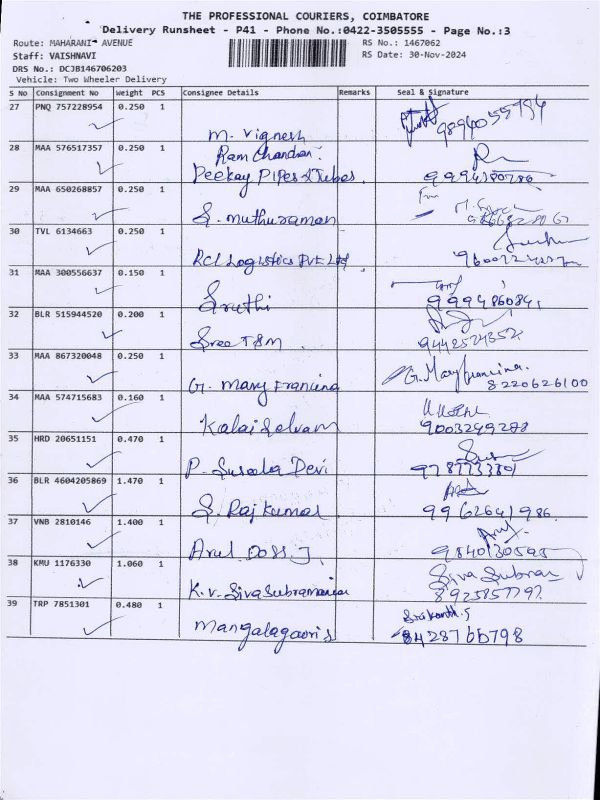 THE PROFESSIONAL COURIERS, COIMBATORE
Delivery Runsheet - P41 - Phone No.:0422-3505555 - Page No.:3
Route: MAHARANI AVENUE
RS No.: 1467062
Staff: VAISHNAVI
RS Date: 30-Nov-2024
DRS No.: DCJB146706203
Vehicle: Two Wheeler Delivery
S No Consignment No Weight PCS Consignee Details Remarks Seal & Signature
27 PNQ 757228954 0.250 1
M. Vignesh
28 MAA 576517357 0.250 1 Ram Chandran.
Peekay Pipes & Tubes.
29 MAA 650268857 0.250 1
S. Muthuraman
30 TVL 6134663 0.250 1
RCL Logistics Pvt Ltd
31 MAA 300556637 0.150 1
Sruthi
32 BLR 515944520 0.200 1
Sree TSM
33 MAA 867320048 0.250 1 G. Mary Francina.
G. Mary Francina 8220626100
34 MAA 574715683 0.160 1
Kalai Selvam 9003249288
35 HRD 20651151 0.470 1
P. Suseela Devi
36 BLR 4604205869 1.470 1
S. Raj Kumar 9962641986.
37 VNB 2810146 1.400 1
Arul Doss J. 9840130595
38 KMU 1176330 1.060 1 Siva Subram
K.V. Siva Subramanian
39 TRP 7851301 0.480 1 Srikanth.S
Mangalagowri S 8428766798